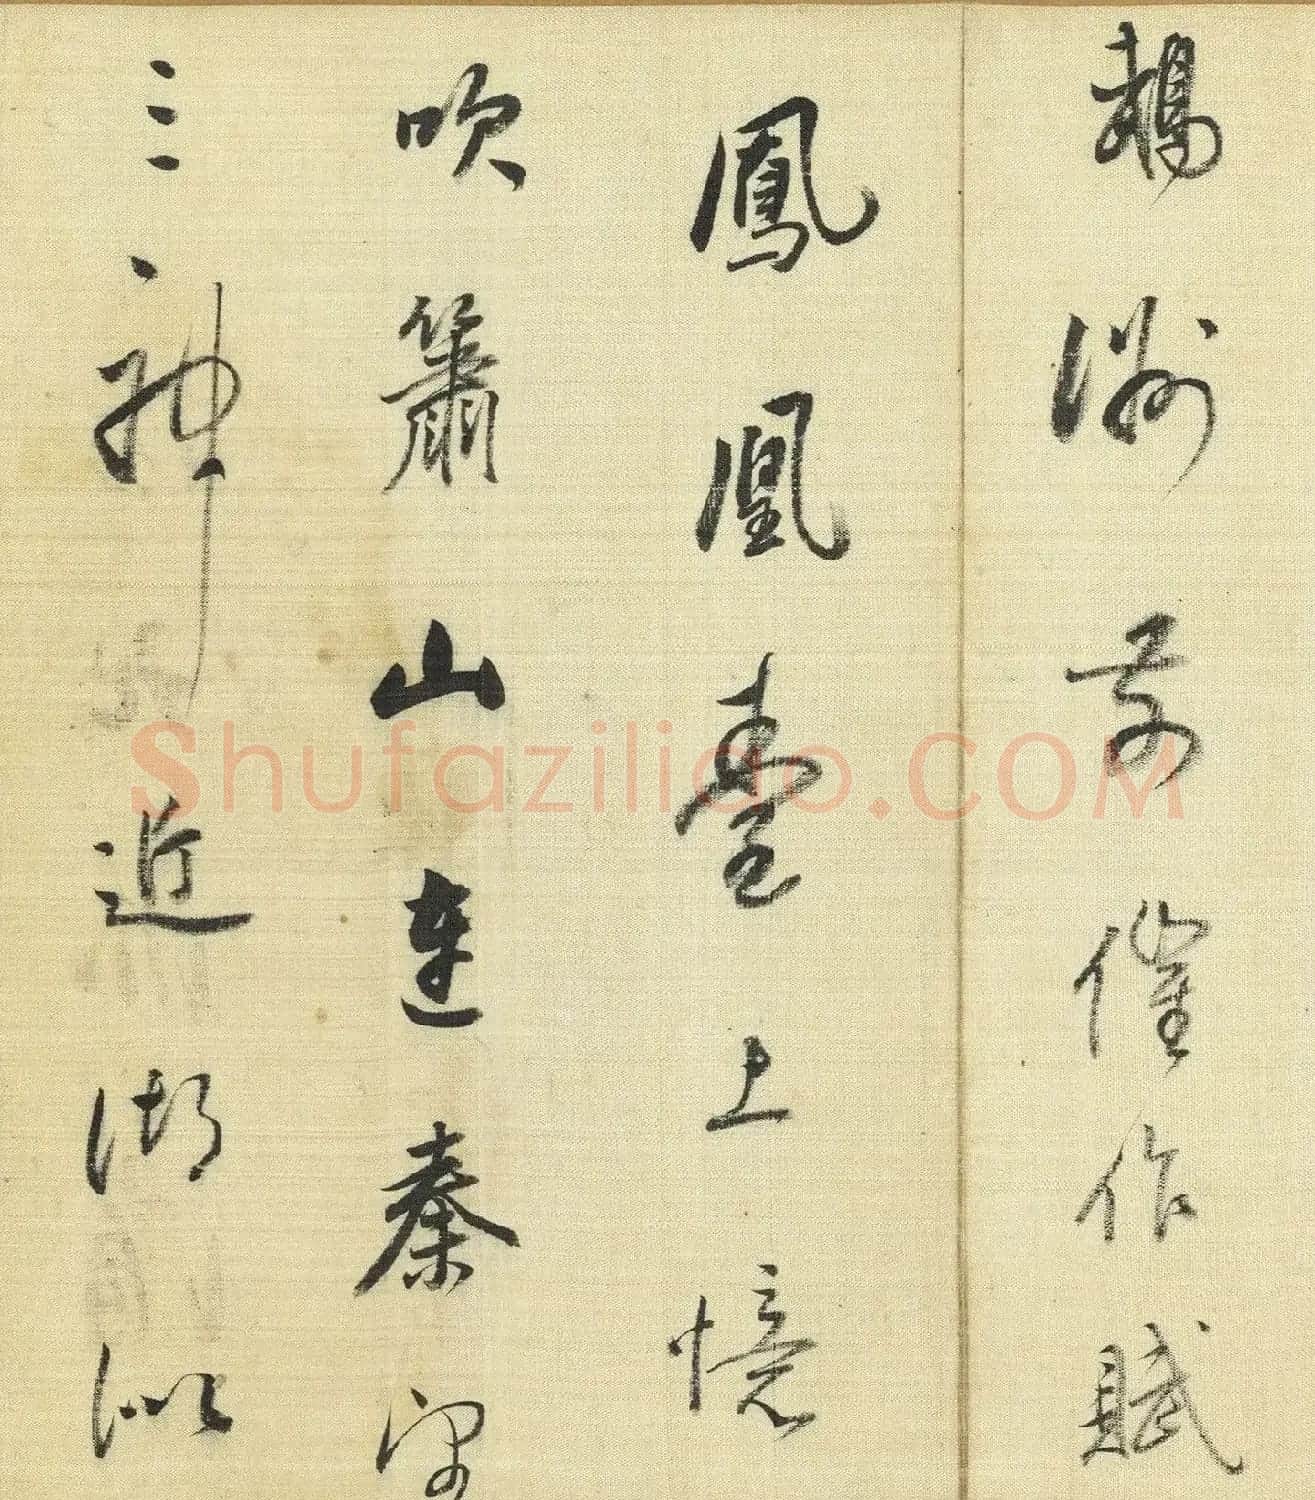 鵡洲前催作賦
鳳凰臺上憶
吹簫山連秦望
三神近湖似
Shufaziliao.COM